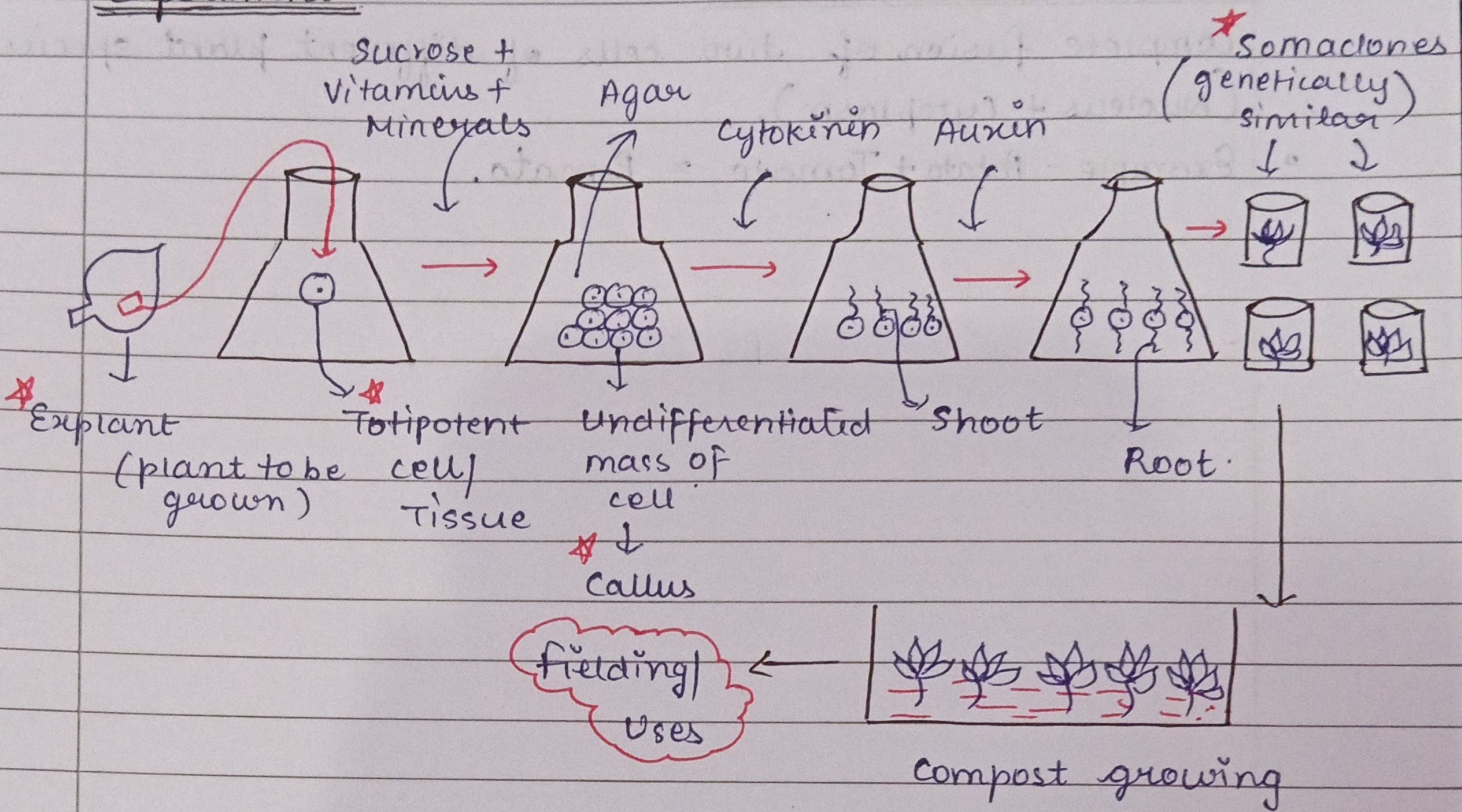 Sucrose +
Vitamins +
Minerals
Agar
Cytokinin
Auxin
Somaclones
(genetically)
similar
Explant
(plant to be
grown)
Totipotent
cell/
Tissue
Undifferentiated
mass of
cell
Callus
Shoot
Root.
fielding/
Uses
Compost growing